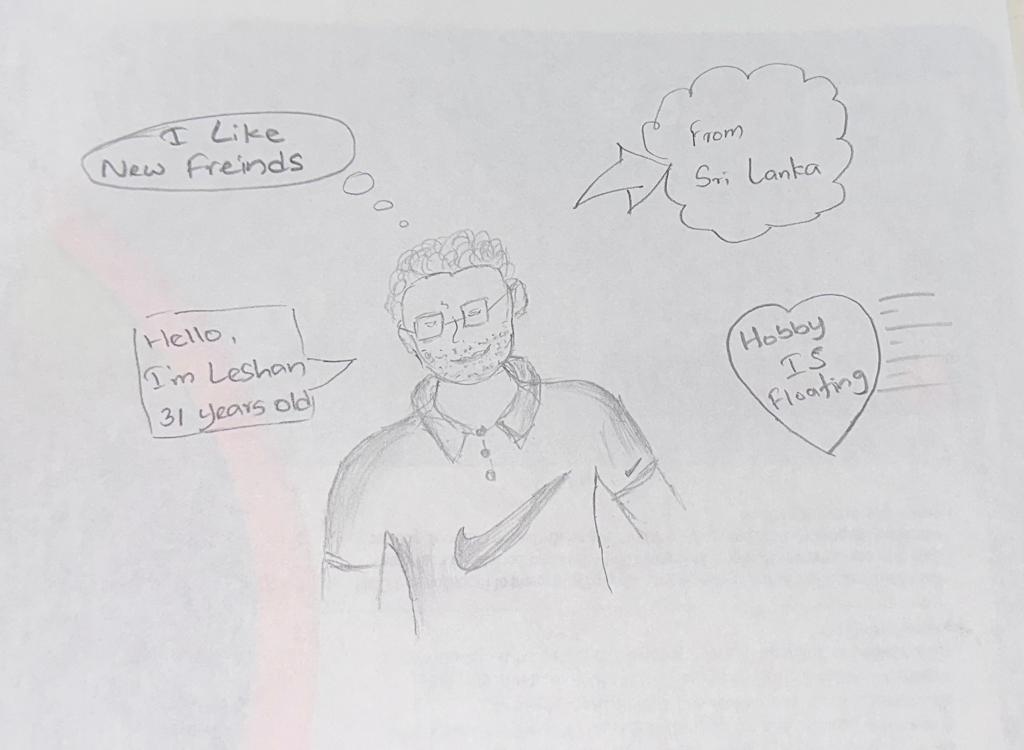 I Like
New Freinds
From
Sri Lanka
Hello,
I'm Leshan
31 years old
Hobby
IS
floating